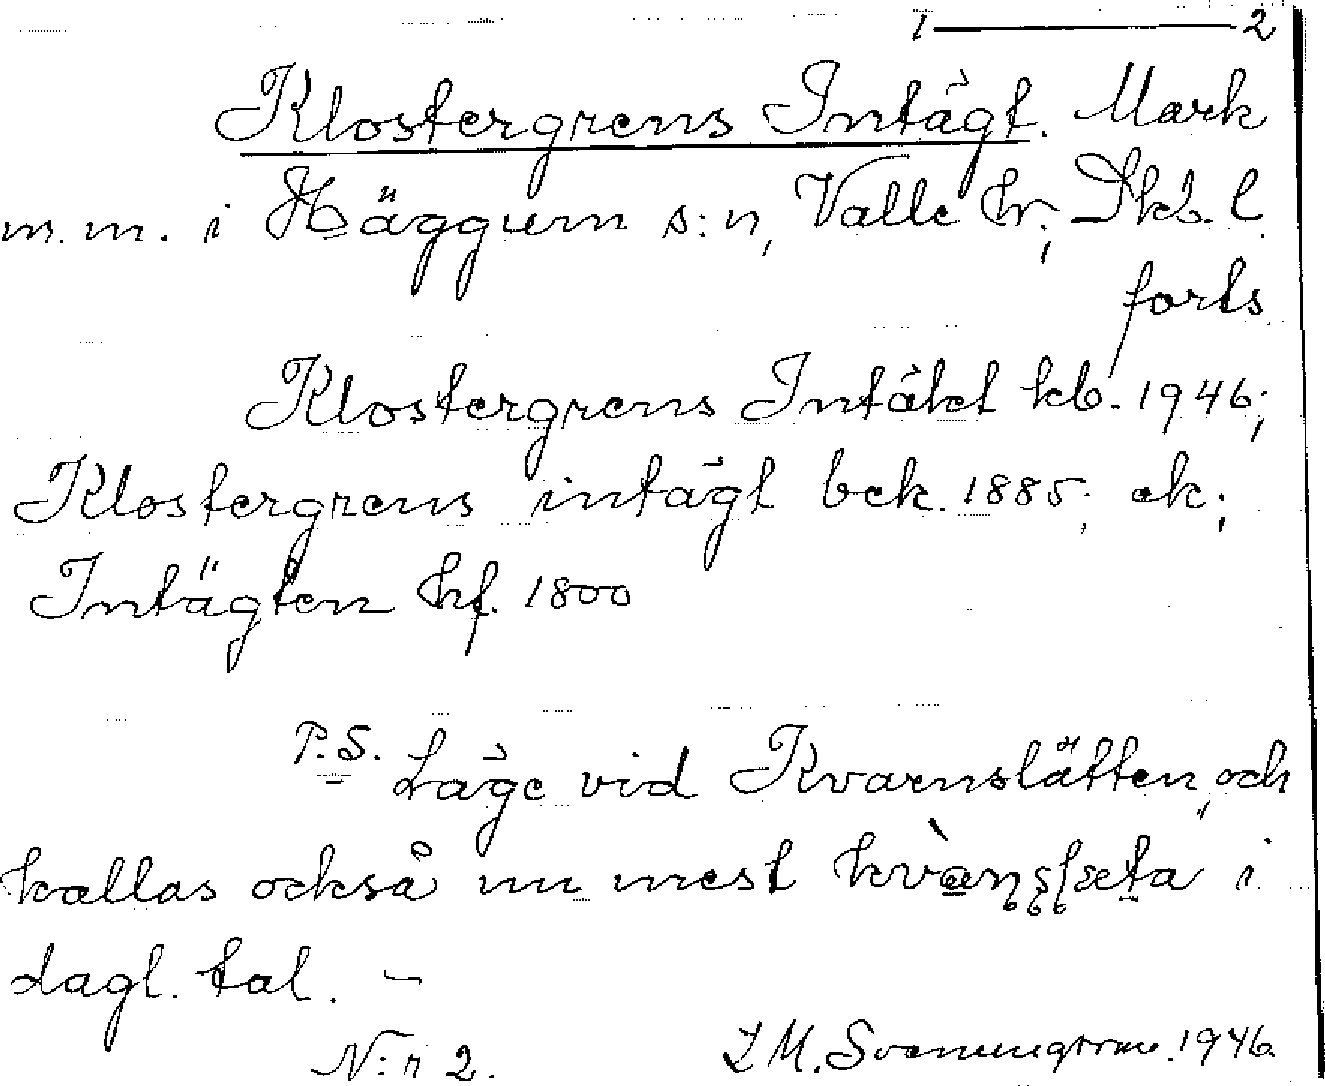 1 — 2
Klostergrens Intägt. Mark
m.m. i Häggum s:n, Valle hr; Skb. l.
forts
Klostergrens Intäkt kb. 1946;
Klostergrens intägt bek. 1885; ek;
Intägten hf. 1800
P.S. Läge vid Kvarnslätten, och
kallas också nu mest i
dagl. tal. –
N:r 2. 1946.